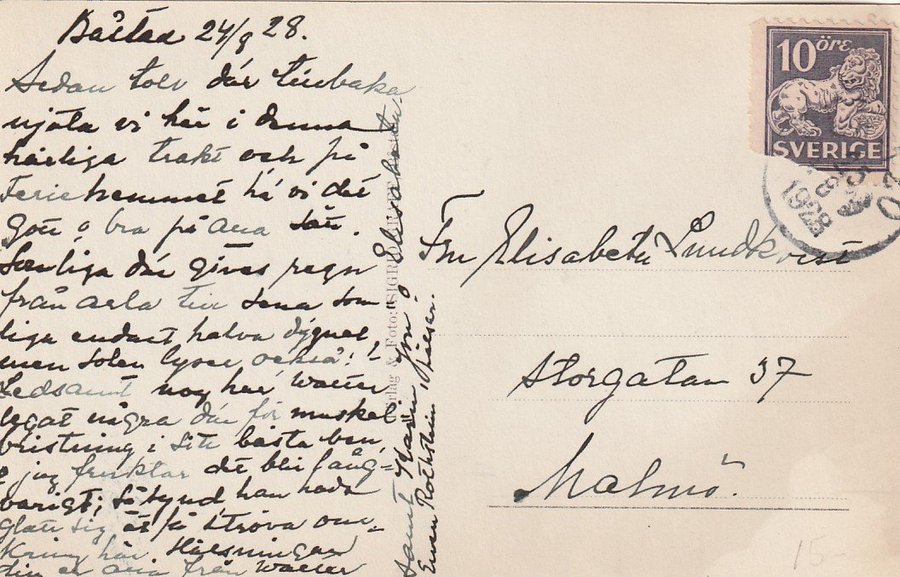 Båstad 24/8 28.
Sedan tolv dar tillbaka
njuta vi här i denna
härliga trakt och på
Feriehemmet ha vi det
gott o bra på alla sätt.
Somliga dar gives regn
från arla till sena som
liga endast halva dygnet,
men solen lyser också!
Ledsamt nog har Walter
legat några dar för muskel
bristning i sitt bästa ben,
o jag fruktar det blir lång-
varigt; så synd han hade
glatt sig åt få ströva om-
kring här. Hälsningar
till er alla från Walter
samt Karin, o Elisabeth
Ewan Rothstein,
Förlag & Foto: SIGR
10 ÖRE
SVERIGE
1928
Fru Elisabeth Lundkvist
Storgatan 37
Malmö.
15-